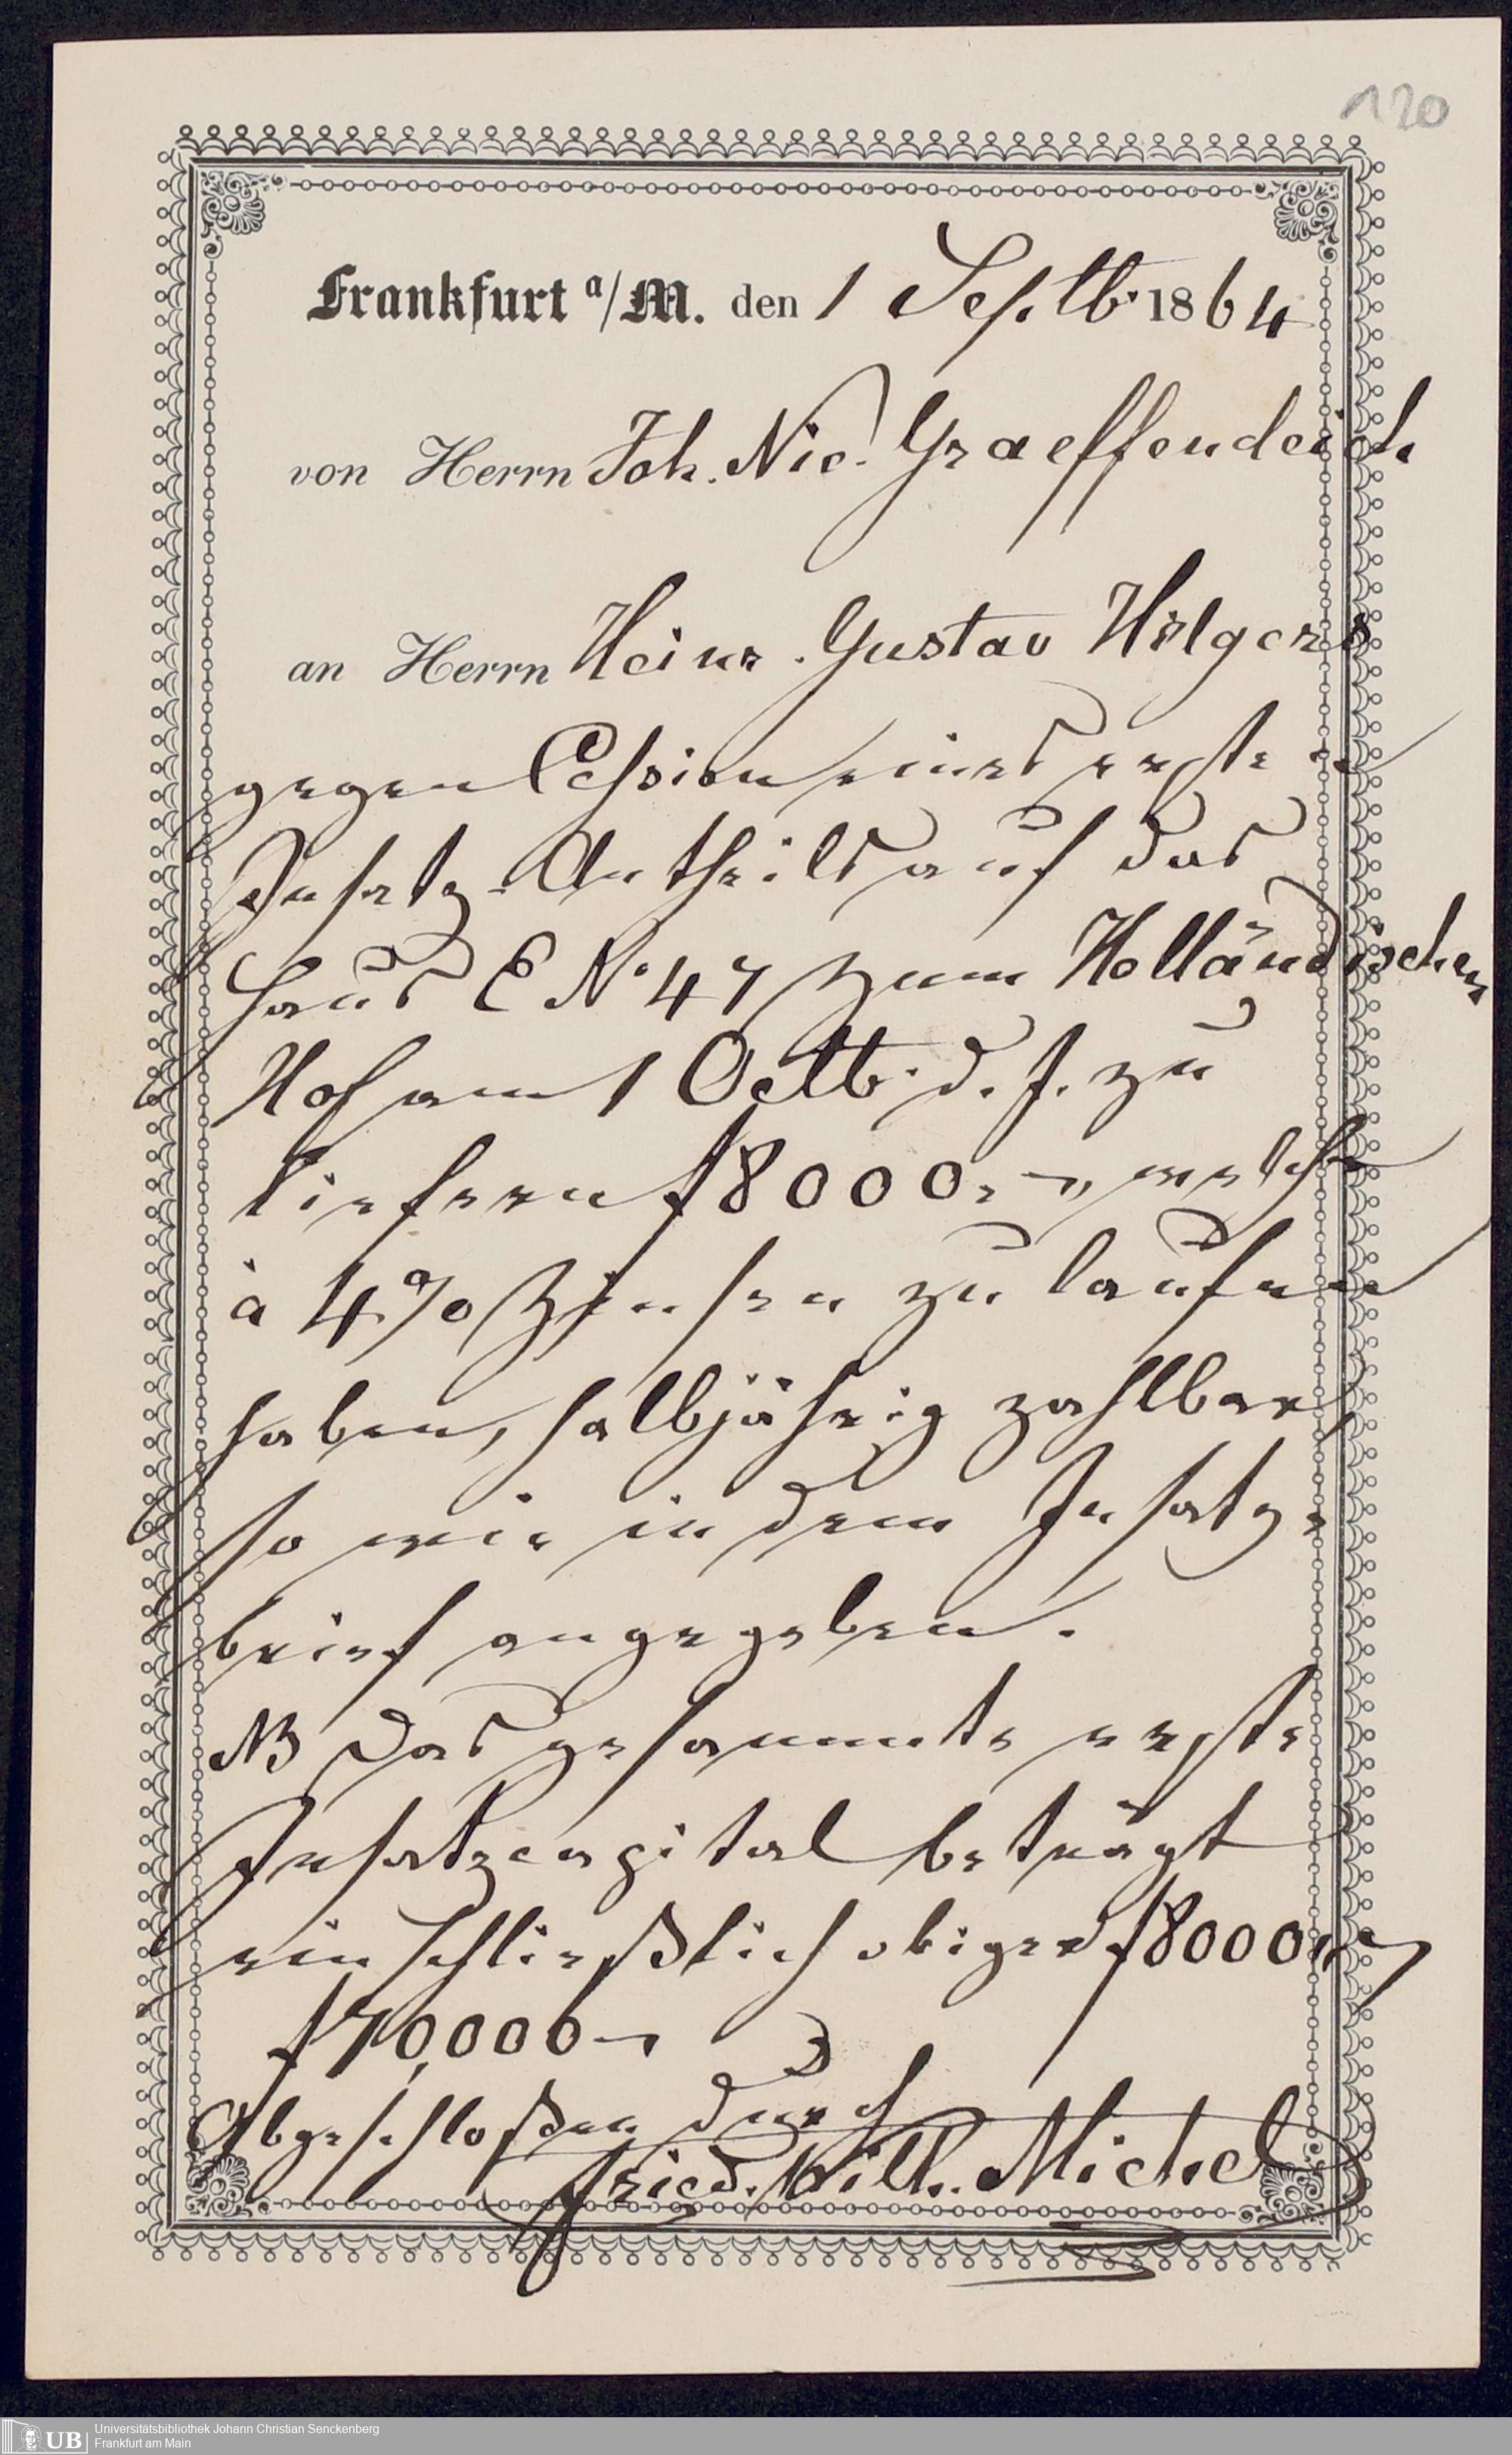 120
Frankfurt a/M. den 1 Septb. 1864
von Herrn Joh. Nic. Graeffendeich
an Herrn Heinr. Gustav Hilgers
gegen Cession eines ersten
Insatz-Antheils auf das
Haus E No. 47 zum Holländischen
Hof am 1 Octb. d. J. zu
liefern f 8000.–, welche
à 4% Zinsen zu laufen
haben, halbjährig zahlbar,
so wie in dem Insatz-
brief angegeben.
NB Das gesammte erste
Insatzcapital beträgt
einschließlich obiger f 8000.–
f 70,000–
Abgeschloßen durch
Fried. Wilh. Michel
UB
Universitätsbibliothek Johann Christian Senckenberg
Frankfurt am Main